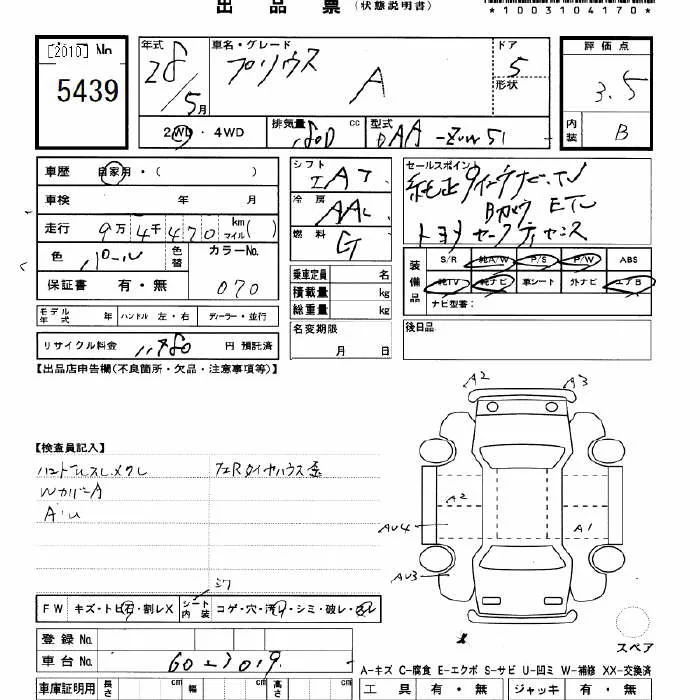 出品票(状態説明書)
*1003104170*
[2010] No 5439
年式 28/5月
車名・グレード プリウス A
ドア 5
形状
評価点 3.5
内装 B
2WD・4WD
排気量 1800 cc
型式 DAA-ZVW51
車歴 自家用・( )
車検 年 月
走行 9万4千470 km マイル( )
色 パール 色替
カラーNo. 070
保証書 有・無
シフト IAT
冷房 AAC
燃料 G
乗車定員 名
積載量 kg
総重量 kg
名変期限 月 日
セールスポイント
純正9インチナビ.TV
Bカメラ ETC
トヨタ セーフティセンス
装備品
S/R 純A/W P/S P/W ABS
純TV 純ナビ 革シート 外ナビ エアB
ナビ型番:
後日品
モデル年式 年 ハンドル 左・右 ディーラー・並行
リサイクル料金 11,780 円 預託済
【出品店申告欄(不良箇所・欠品・注意事項等)】
A2 A3
【検査員記入】
ハンドルスレ.メクレ
WカバーA
A'U
A2
AU4 A1
AU3
FW キズ・トビ石・割レX シート内装 コゲ・穴・汚レ・シミ・破レ・スレ
登録No.
車台No. 60-3019
スペア
A-キズ C-腐食 E-エクボ S-サビ U-凹ミ W-補修 XX-交換済
車庫証明用 長さ cm 幅 cm 高さ cm
工具 有・無 ジャッキ 有・無